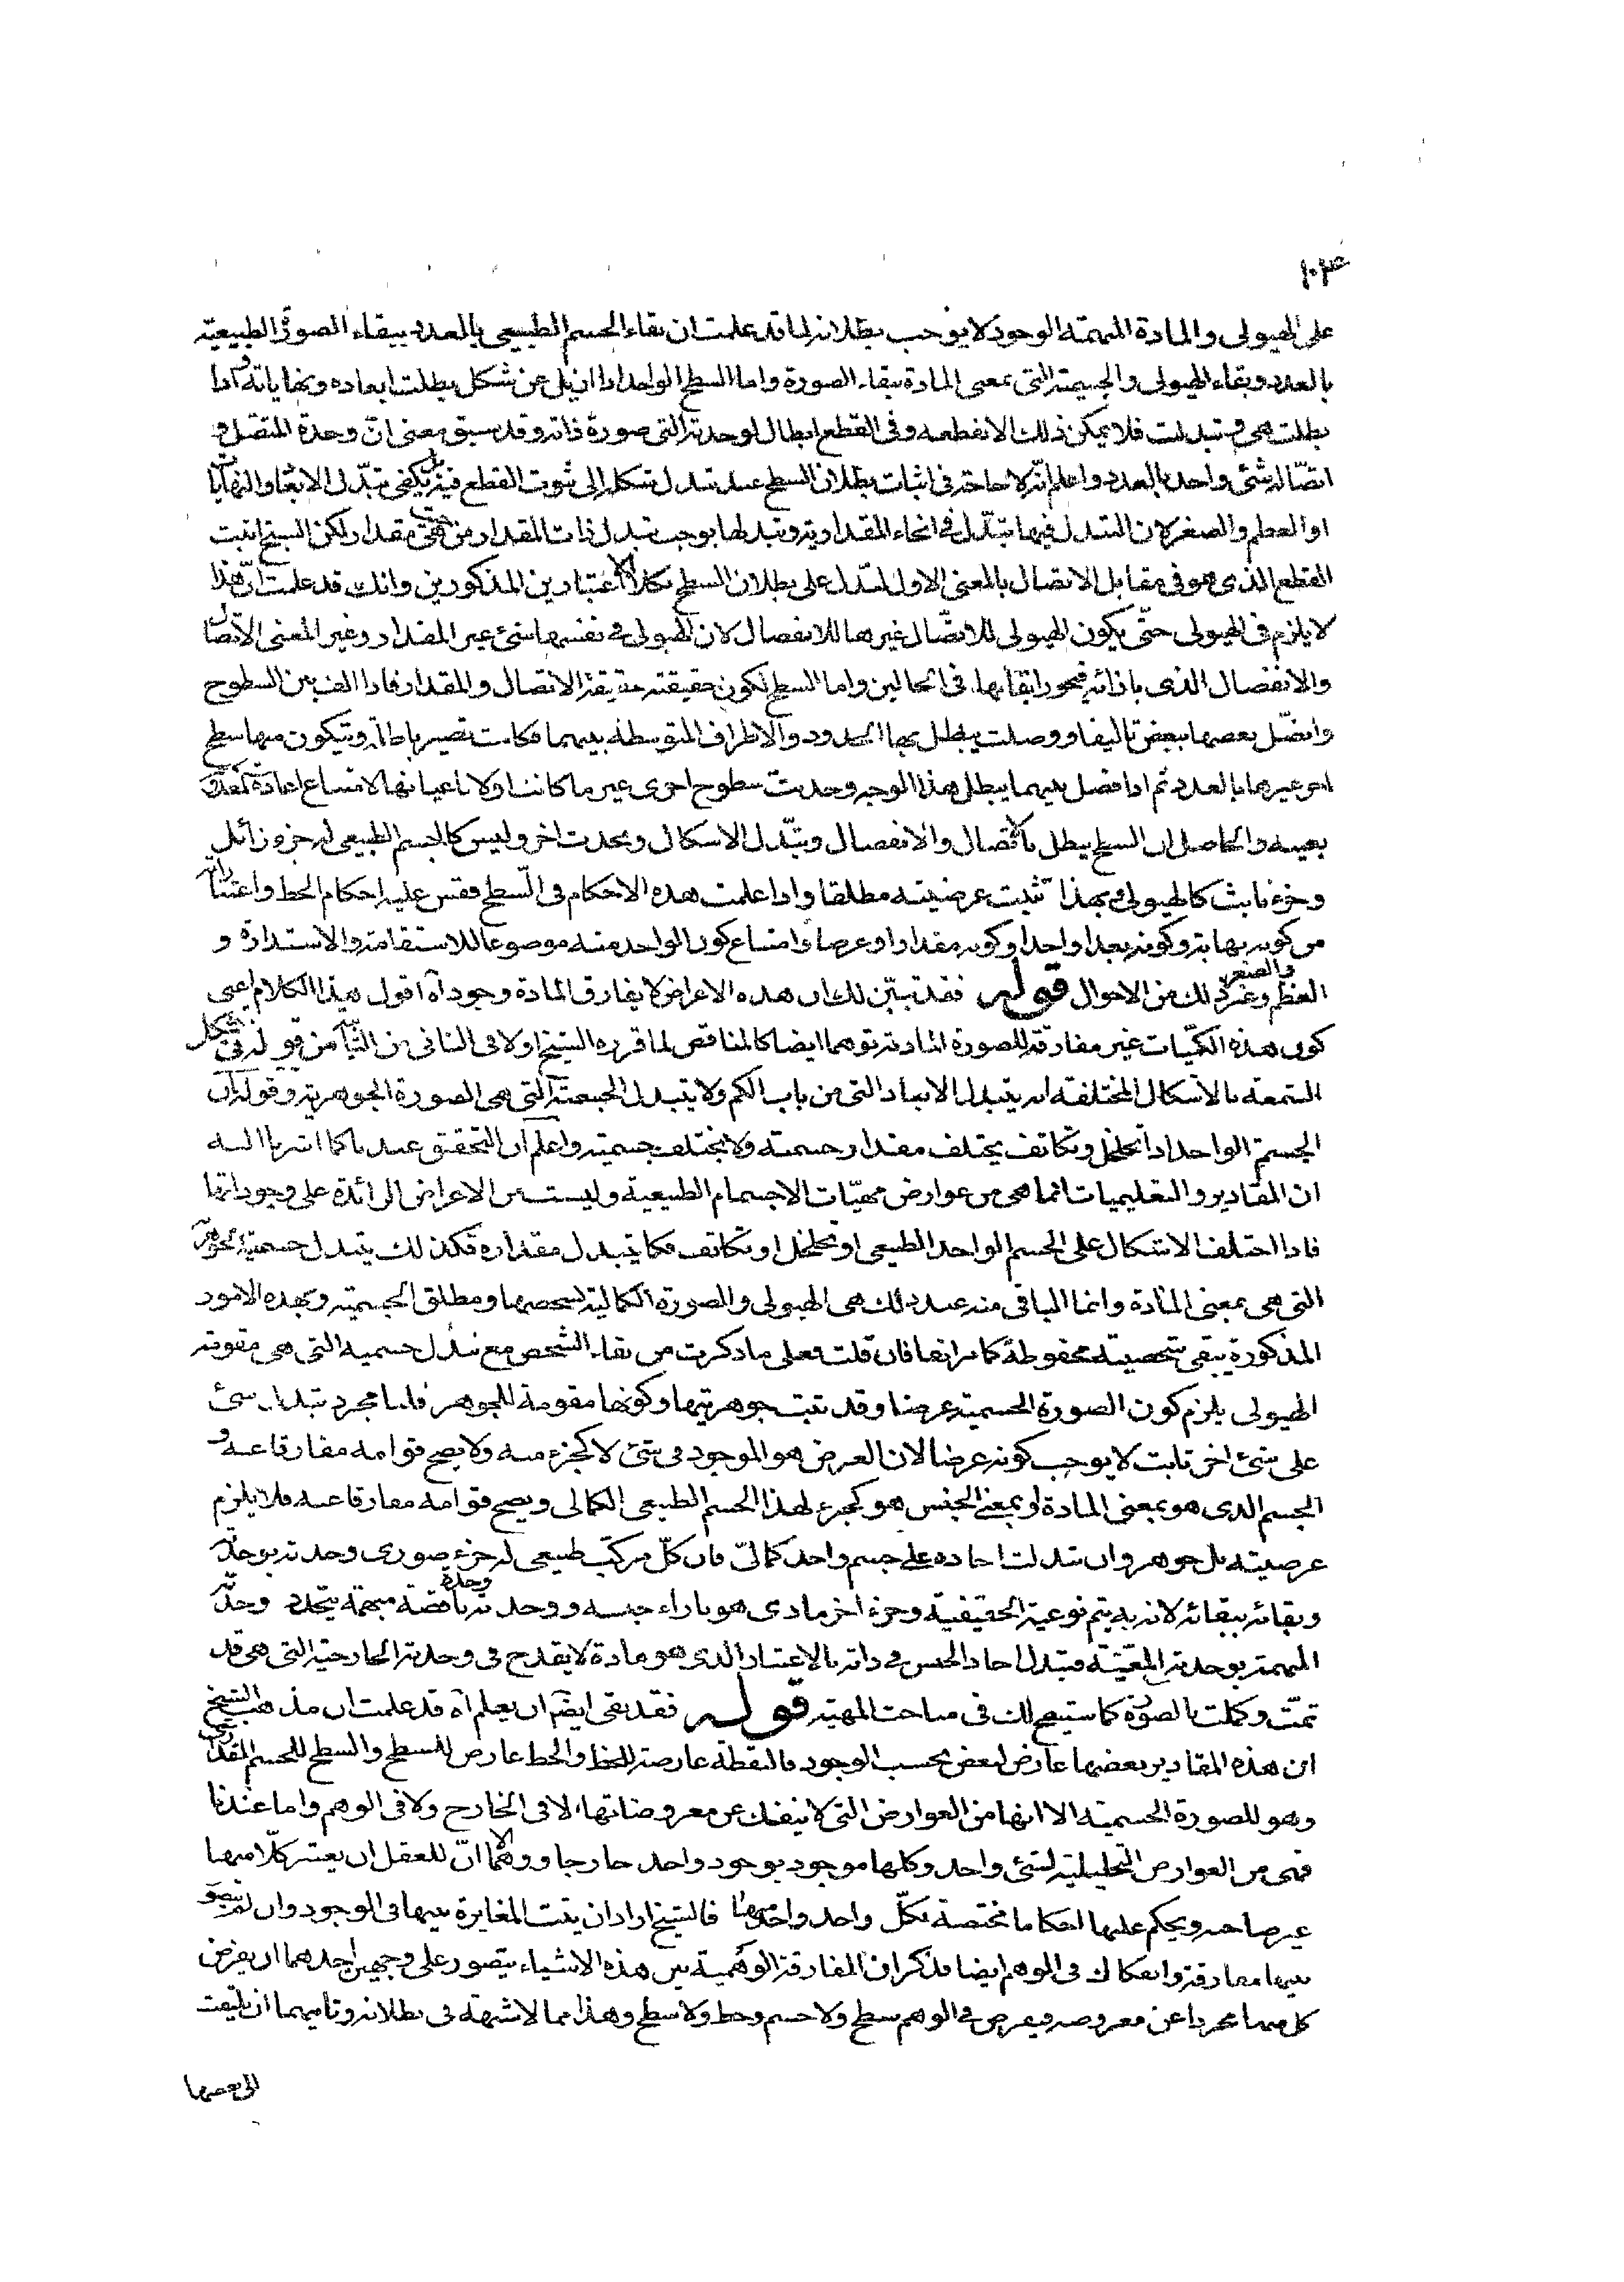 ١٠٣
على الهيولى والمادة المبهمة الوجود لا يوجب بطلانه لما قد علمت ان بقاء الجسم الطبيعى بالعدد ببقاء الصورة الطبيعية
بالعدد وبقاء الهيولى والجسمية التى بمعنى المادة ببقاء الصورة واما السطح الواحد اذا ازيل عن شكل بطلت ابعاده ونهاياته واذا
بطلت هى وتبدلت فلا يمكن ذلك الا بقطعه وفى القطع ابطال لوحدته التى صورة ذاته وقد سبق معنى ان وحدة المتصل و
اتصاله شئ واحد بالعدد واعلم انه لا حاجة فى اثبات بطلان السطح عند تبدل شكله الى ثبوت القطع فيه بل يكفى تبدل الابعاد والنهايات
او العظم والصغر لان التبدل فيها تبدل فى انحاء المقدارية وتبدلها يوجب تبدل ذات المقدار من حيث هى مقدار لكن الشيخ اثبت
القطع الذى هو فى مقابل الاتصال بالمعنى الاول ليدل على بطلان السطح بكلا الاعتبارين المذكورين وانك قد علمت ان هذا
لا يلزم فى الهيولى حتى يكون الهيولى للاتصال غيرها للانفصال لان الهيولى فى نفسها شئ غير المقدار وغير المعنى الاتصال
والانفصال الذى بازائه فيجوز بقاؤها فى الحالين واما السطح لكون حقيقته حقيقة الاتصال والمقدار فاذا الف بين السطوح
واتصل بعضها ببعض تاليفا ووصلت يبطل بها الحدود والاطراف المتوسطة بينهما فكانت تصير باطلة ويتكون منها سطح
اخر غيرها بالعدد ثم اذا فصل بينهما يبطل هذا الوجه وحدثت سطوح اخرى غير ما كانت اولا باعيانها لامتناع اعادة المعدوم
بعينه والحاصل ان السطح يبطل بالاتصال والانفصال وتبدل الاشكال ويحدث اخر وليس كالجسم الطبيعى له جزء زائل
وجزء ثابت كالهيولى فبهذا تثبت عرضيته مطلقا واذا علمت هذه الاحكام فى السطح فقس عليه احكام الخط واعتباراته
من كونه نهاية وكونه بعدا واحدا وكونه مقدارا وعرضا وامتناع كون الواحد منه موضوعا للاستقامة والاستدارة و
العظم والصغر وغير ذلك من الاحوال قوله فقد تبين لك ان هذه الاعراض لا يفارق المادة وجودا آه اقول هذا الكلام اعنى
كون هذه الكميات غير مفارقة للصورة المادية توهما ايضا كالمناقض لما قرره الشيخ اولا فى الثانى من الثانية من قوله فى تشكل
الشمعة بالاشكال المختلفة انه يتبدل الابعاد التى من باب الكم ولا يتبدل الجسمية التى هى الصورة الجوهرية وقوله ان
الجسم الواحد اذا تخلخل وتكاثف يختلف مقدار جسمه ولا يختلف جسميته واعلم ان التحقيق عندنا كما اشرنا اليه
ان المقادير والتعليميات انما هى من عوارض مهيات الاجسام الطبيعية وليست من الاعراض الزائدة على وجوداتها
فاذا اختلف الاشكال على الجسم الواحد الطبيعى او تخلخل او تكاثف فكما يتبدل مقداره فكذلك يتبدل جسميته الجوهرية
التى هى بمعنى المادة وانما الباقى منه عند ذلك هى الهيولى والصورة الكمالية لشخصها ومطلق الجسمية وبهذه الامور
المذكورة يبقى شخصيته محفوظة كما مر انفا فان قلت فعلى ما ذكرت من بقاء الشخص مع تبدل جسميته التى هى مقومة
الهيولى يلزم كون الصورة الجسمية عرضا وقد ثبت جوهريتها وكونها مقومة للجوهر قلنا مجرد تبدل شئ
على شئ اخر ثابت لا يوجب كونه عرضا لان العرض هو الموجود فى شئ لا كجزء منه ولا يصح قوامه مفارقا عنه و
الجسم الذى هو بمعنى المادة او بمعنى الجنس هو كجزء لهذا الجسم الطبيعى الكمالى ويصح قوامه مفارقا عنه فلا يلزم
عرضيته بل جوهر وان تبدلت احاده على جسم واحد كمالى فان كل مركب طبيعى له جزء صورى وحدته بوحدته
وبقائه ببقائه لانه به يتم نوعيته الحقيقية وجزء اخر مادى هو بازاء جنسه ووحدته وحدة ناقصة مبهمة يتجدد وحدته
المبهمة بوحدته المعينة فتبدل احاد الجنس فى ذاته بالاعتبار الذى هو مادة لا يقدح فى وحدته الخارجية التى هى قد
تمت وكملت بالصورة كما ستيضح لك فى مباحث المهية قوله فقد بقى ايضا ان يعلم آه قد علمت ان مذهب الشيخ
ان هذه المقادير بعضها عارض لبعض بحسب الوجود فالنقطة عارضة للخط والخط عارض للسطح والسطح للجسم المقدارى
وهو للصورة الجسمية الا انها من العوارض التى لا ينفك عن معروضاتها لا فى الخارج ولا فى الوهم واما عندنا
فهى من العوارض التحليلية لشئ واحد وكلها موجود بوجود واحد خارجا ووهما الا ان للعقل ان يعتبر كلا منها
غير صاحبه ويحكم عليها احكاما مختصة بكل واحد واحد منها فالشيخ اراد ان يثبت المغايرة بينها فى الوجود وان لم يتصور
بينها مفارقة وانفكاك فى الوهم ايضا فذكر ان المفارقة الوهمية بين هذه الاشياء يتصور على وجهين احدهما ان يفرض
كل منها مجردا عن معروضه فيفرض فى الوهم سطح ولا جسم وخط ولا سطح وهذا مما لا شبهة فى بطلانه وثانيهما ان يلتفت
الى بعضها